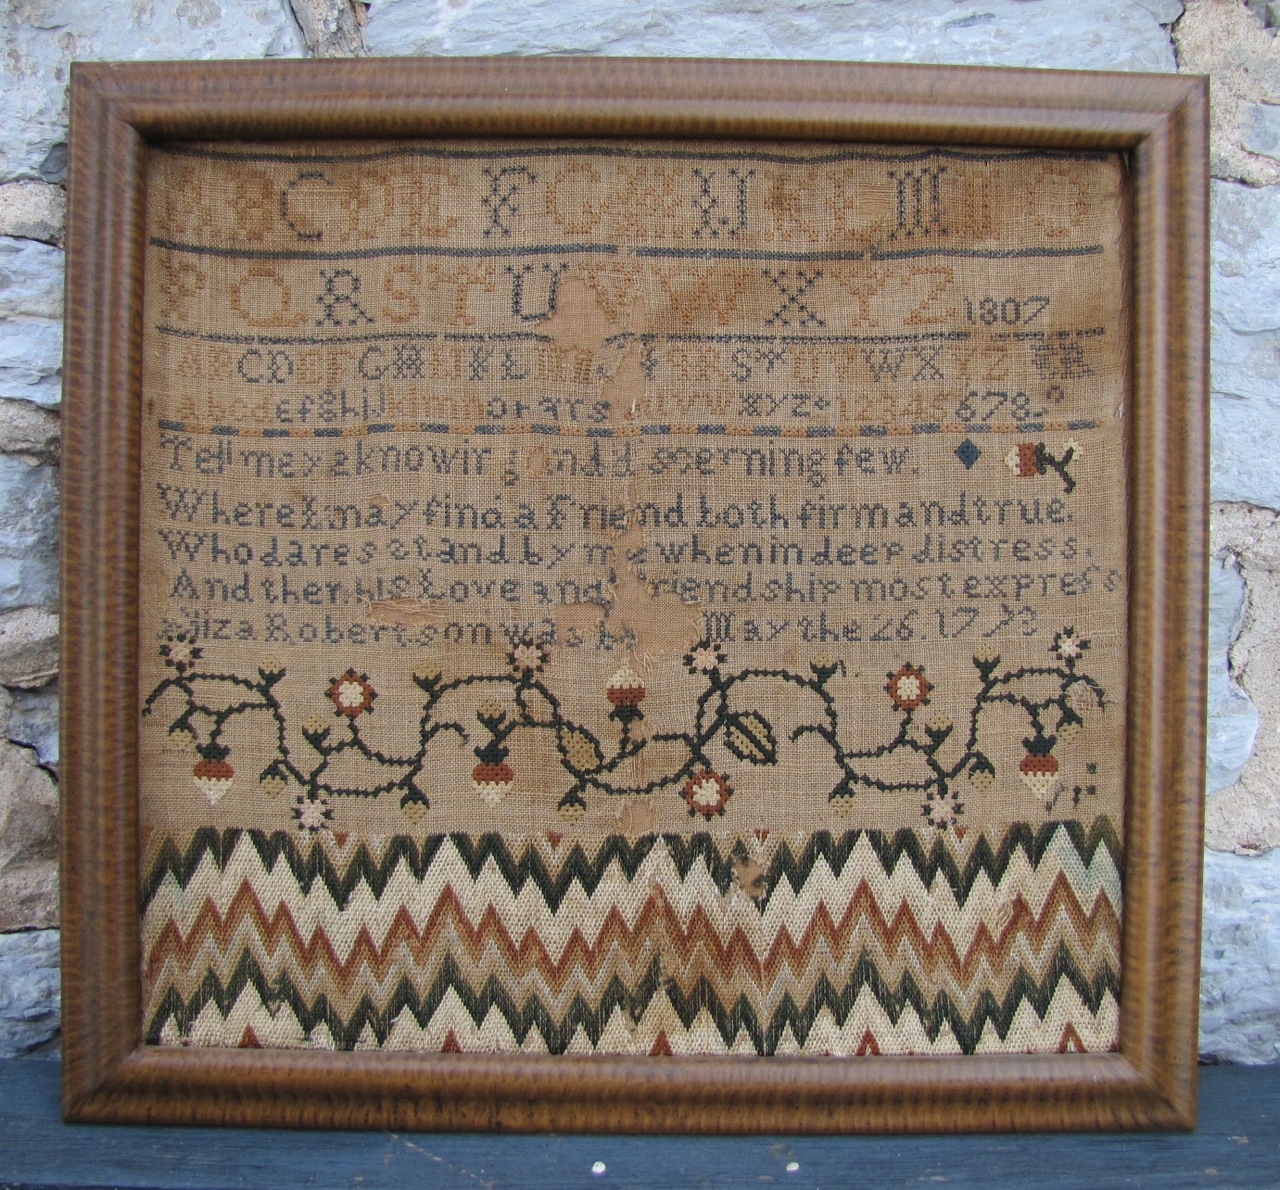 A B C D E F G H I J K L M N O
P Q R S T U V W X Y Z 1807
A B C D E F G H I J K L M R S T U V W X Y Z
a b c d e f g h i J k l m n o p q r s u v w x y z 1 2 3 4 5 6 7 8
Tell me ye knowing and discerning few.
Where I may find a Friend both firm and true.
Who dares stand by me when in deep distress.
And then his Love and friendship most express
Eliza Robertson was May the 26. 1793